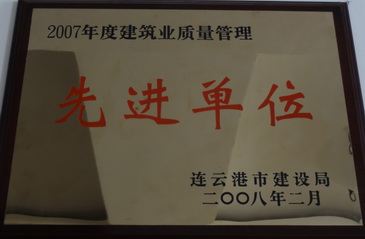 2007年度建筑业质量管理
先进单位
连云港市建设局
二〇〇八年二月